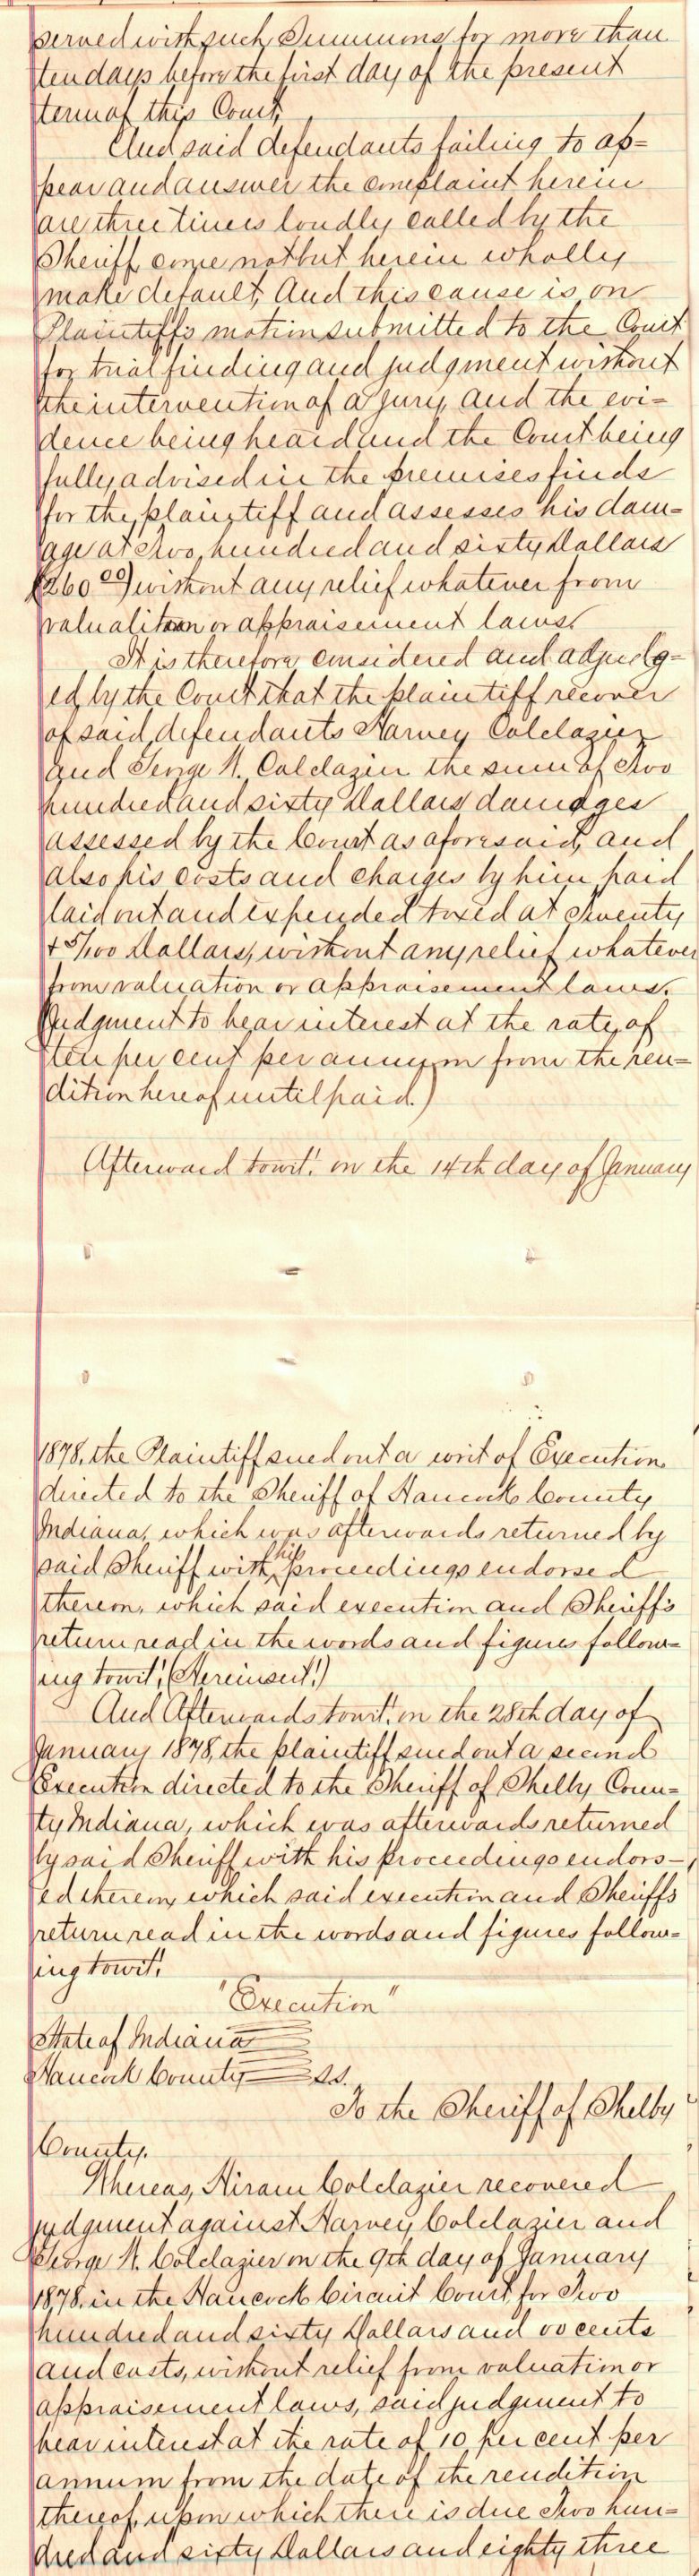 served with such Summons for more than
ten days before the first day of the present
term of this Court,
And said defendants failing to ap=
pear and answer the complaint herein
are three times loudly called by the
Sheriff come not but herein wholly
make default, And this cause is on
Plaintiff's motion submitted to the Court
for trial finding and judgment without
the intervention of a jury, and the evi=
dence being heard and the Court being
fully advised in the premises finds
for the plaintiff and assesses his dam=
age at Two hundred and sixty Dollars
($260 00) without any relief whatever from
valuation or appraisement laws.
It is therefore considered and adjudg=
ed by the Court that the plaintiff recover
of said defendants Harvey Colclazier
and George W. Colclazier the sum of Two
hundred and sixty Dollars damages
assessed by the Court as aforesaid, and
also his costs and charges by him paid
laid out and expended taxed at Twenty
+ 5/100 Dollars, without any relief whatever
from valuation or appraisement laws.
Judgment to bear interest at the rate of
ten per cent per annum from the ren=
dition hereof until paid.)
Afterward towit! on the 14th day of January
1878, the Plaintiff sued out a writ of Execution
directed to the Sheriff of Hancock County
Indiana, which was afterwards returned by
said Sheriff with his proceedings endorsed
thereon, which said execution and Sheriff's
return read in the words and figures follow=
ing towit! (Hereinsert!)
And Afterwards towit! on the 28th day of
January 1878, the plaintiff sued out a second
Execution directed to the Sheriff of Shelby Coun=
ty Indiana, which was afterwards returned
by said Sheriff with his proceedings endors-
ed thereon, which said execution and Sheriffs
return read in the words and figures follow=
ing towit!
"Execution"
State of Indiana
Hancock County S.S.
To the Sheriff of Shelby
County.
Whereas, Hiram Colclazier recovered
judgment against Harvey Colclazier and
George W. Colclazier on the 9th day of January
1878, in the Hancock Circuit Court for Two
hundred and sixty Dollars and 00 cents
and costs, without relief from valuation or
appraisement laws, said judgment to
bear interest at the rate of 10 per cent per
annum from the date of the rendition
thereof, upon which there is due Two hun=
dred and sixty Dollars and eighty three